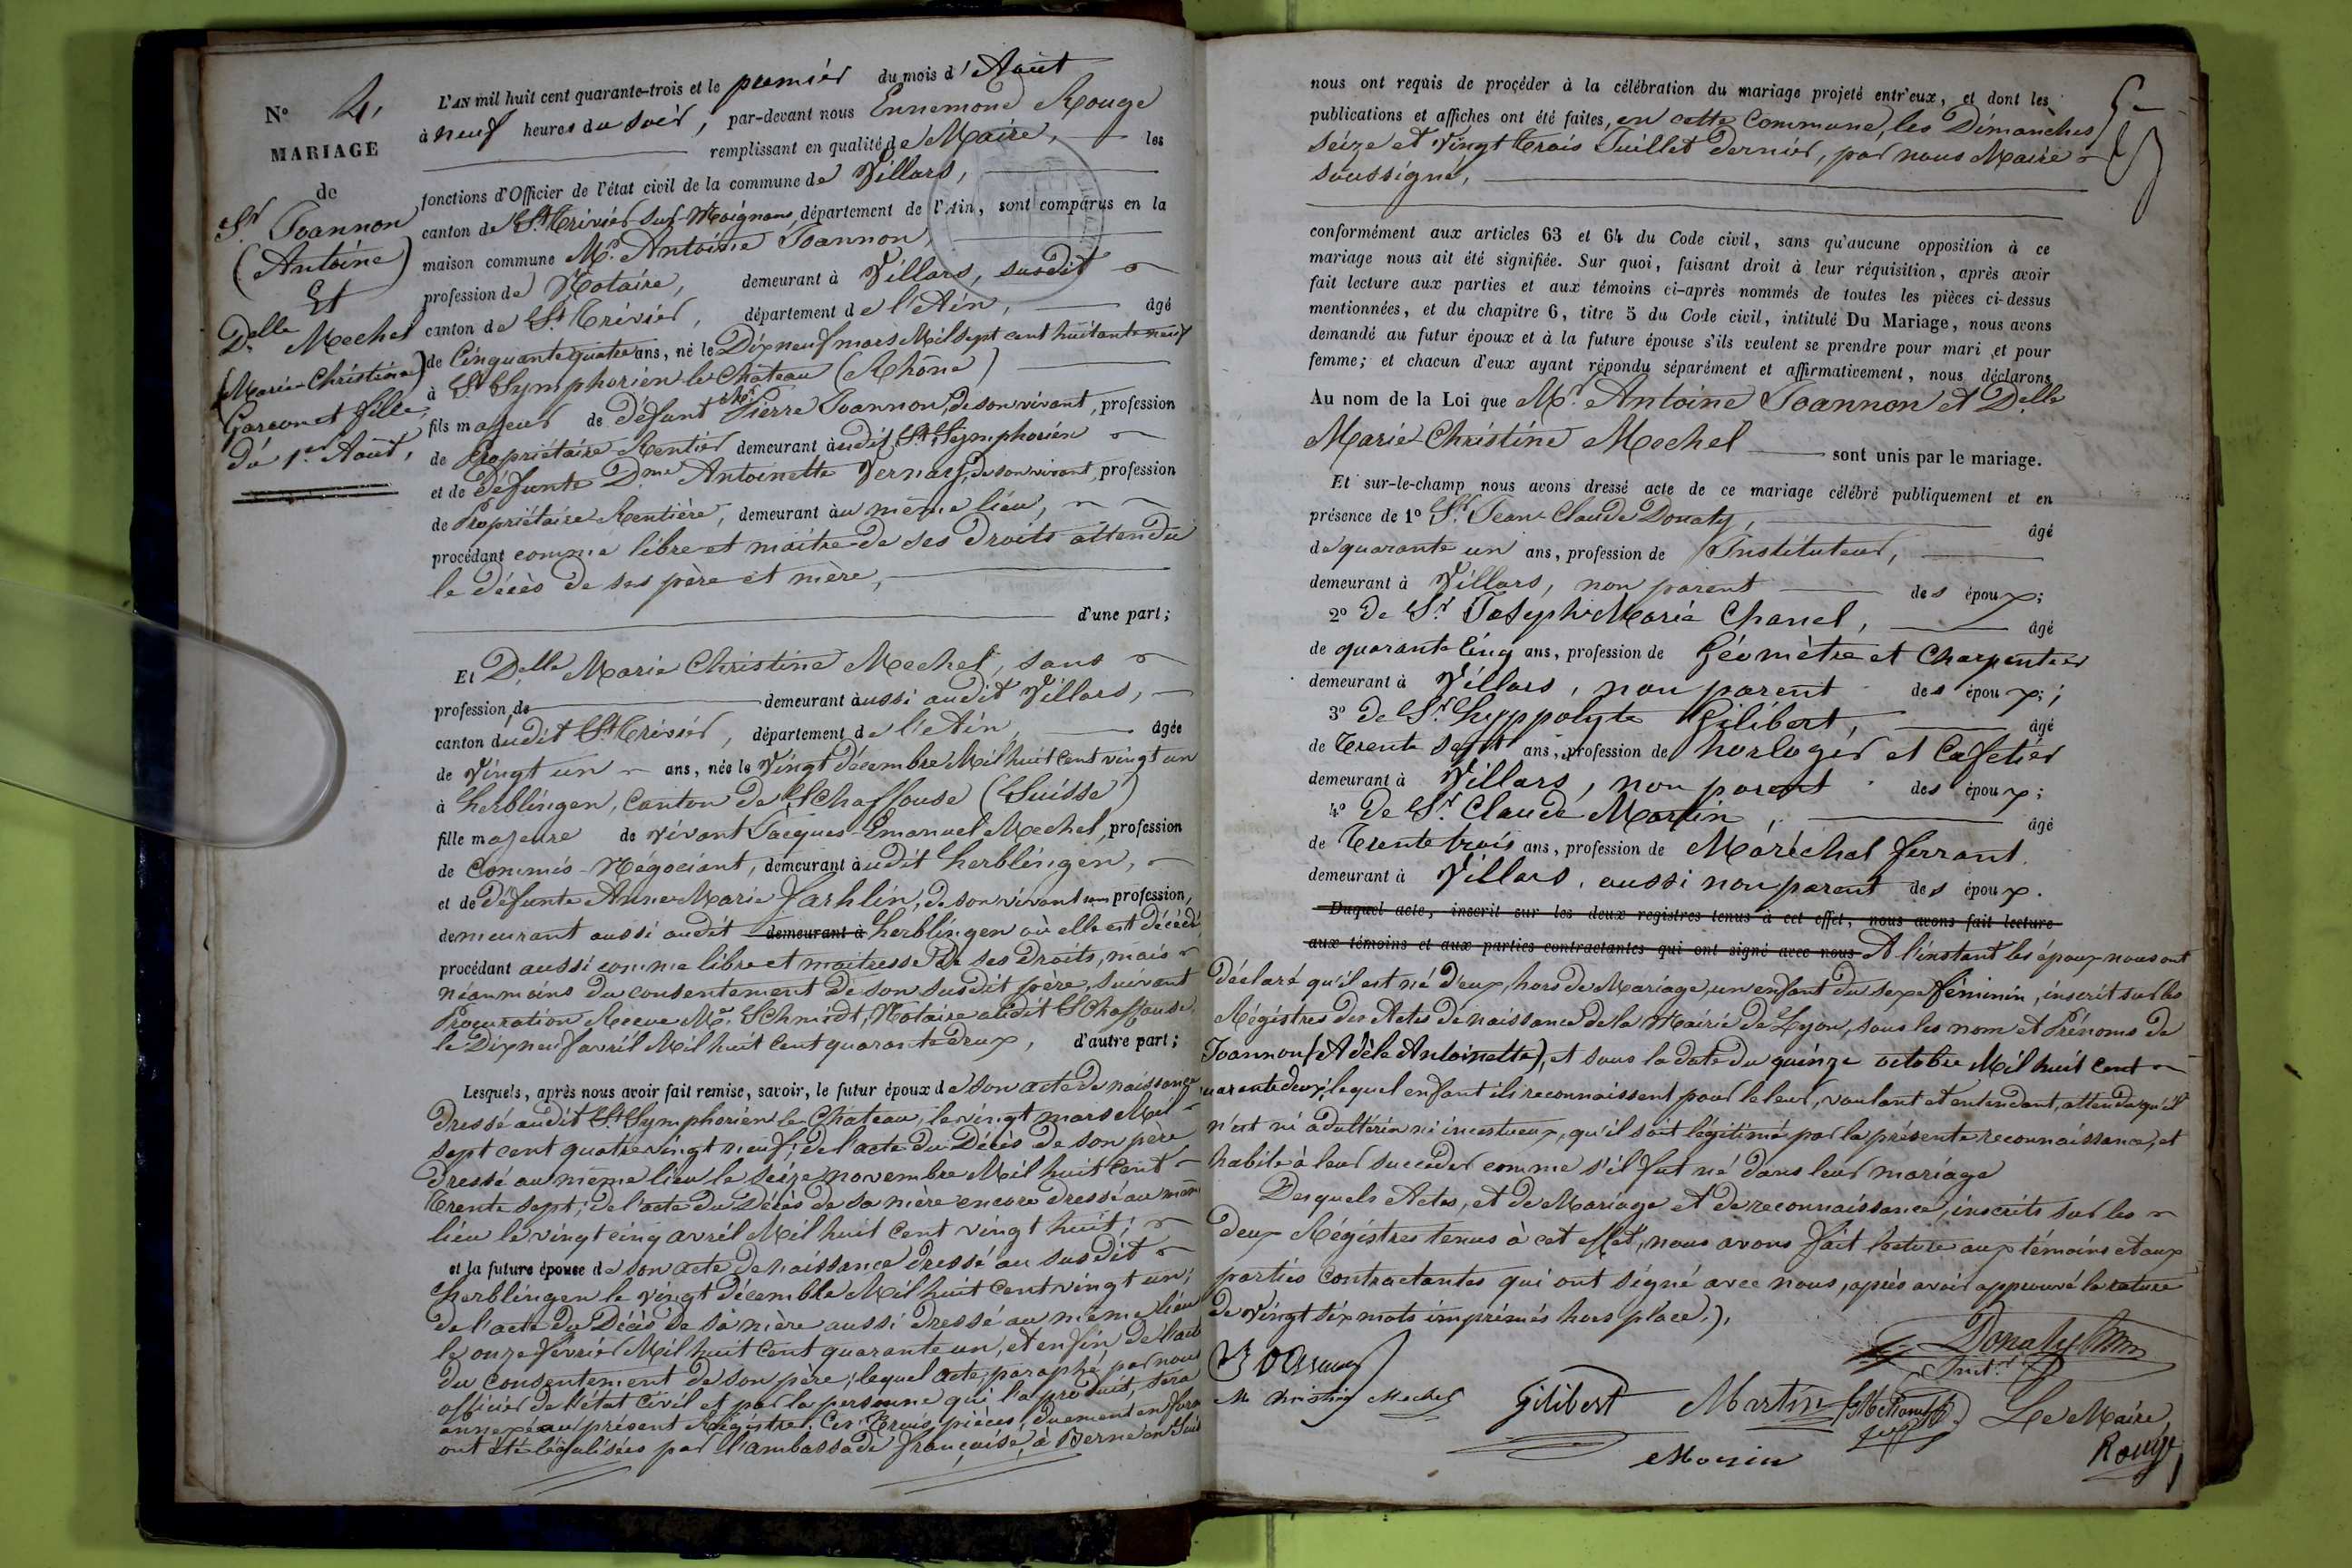 N° 4,
MARIAGE
de
Sr Joannon
(Antoine)
Et
Delle Mechel
(Marie-Christine)
Garçon et fille,
du 1er Août,
L'AN mil huit cent quarante-trois et le premier du mois d'Août
à neuf heures du soir, par-devant nous Ennemond Rouge
remplissant en qualité de Maire, les
fonctions d'Officier de l'état civil de la commune de Villars,
canton de St Trivier-sur-Moignans, département de l'Ain, sont comparus en la
maison commune Mr. Antoine Joannon,
profession de Notaire, demeurant à Villars, susdit
canton de St Trivier, département de l'Ain, âgé
de Cinquante quatre ans, né le Dix neuf mars Mil sept cent huitante-neuf
à St Symphorien-le-Château (Rhône)
fils majeur de défunt Mr Pierre Joannon, de son vivant, profession
de Propriétaire Rentier demeurant àudit St Symphorien
et de défunte Dme Antoinette Vernay, de son vivant, profession
de Propriétaire Rentière, demeurant àu même lieu,
procédant comme libre et maître de ses droits attendu
le décès de ses père et mère,
d'une part;
Et Delle Marie Christine Mechel, sans
profession de demeurant àussi audit Villars,
canton dudit St Trivier, département de l'Ain, âgée
de Vingt un ans, née le Vingt décembre Mil huit cent vingt un
à herblingen, Canton de Schaffouse (Suisse)
fille majeure de vivant Jacques-Emanuel Mechel, profession
de Commis-Négociant, demeurant àudit herblingen,
et de défunte Anne Marie Farhlin, de son vivant sans profession,
demeurant aussi audit demeurant à herblingen où elle est décédé
procédant aussi comme libre et maitresse de ses droits, mais
néanmoins du consentement de son susdit père, suivant
Procuration Recue Me. Schmidt, Notaire audit Schaffouse,
le Dix neuf avril Mil huit cent quarante deux, d'autre part;
Lesquels, après nous avoir fait remise, savoir, le futur époux de son acte de naissance
dressé audit St Symphorien le Chateau, le vingt mars Mil
sept cent quatre vingt neuf; de l'acte du Décès de son père
dressé au même lieu le seize novembre Mil huit cent
trente sept; de l'acte du Décès de sa mère encore dressé au même
lieu le vingt cinq avril Mil huit cent vingt huit;
et la future épouse de son acte de naissance dressé au susdit
herblingen le vingt décembre Mil huit cent vingt un;
de l'acte du Décès de sa mère aussi dressé au même lieu
le onze février Mil huit cent quarante un, et enfin de l'acte
du consentement de son père; lequel acte, paraphé par nous
officier de l'état civil et par la personne qui l'a produit, sera
annexé au présent Régistre. Ces trois pièces, duement en forme
ont été légalisées par l'ambassade française, à Berne en Suis
nous ont requis de procéder à la célébration du mariage projeté entr'eux, et dont les
publications et affiches ont été faites, en cette Commune, les Dimanches
Seize et Vingt trois Juillet dernier, par nous Maire
soussigné,
conformément aux articles 63 et 64 du Code civil, sans qu'aucune opposition à ce
mariage nous ait été signifiée. Sur quoi, faisant droit à leur réquisition, après avoir
fait lecture aux parties et aux témoins ci-après nommés de toutes les pièces ci-dessus
mentionnées, et du chapitre 6, titre 5 du Code civil, intitulé Du Mariage, nous avons
demandé au futur époux et à la future épouse s'ils veulent se prendre pour mari et pour
femme; et chacun d'eux ayant répondu séparément et affirmativement, nous déclarons
Au nom de la Loi que Mr. Antoine Joannon et Delle
Marie-Christine Mechel sont unis par le mariage.
Et sur-le-champ nous avons dressé acte de ce mariage célébré publiquement et en
présence de 1° Sr. Jean-Claude Donaty, âgé
de quarante un ans, profession de Instituteur,
demeurant à Villars, non parent des époux;
2° de Sr. Joseph-Marie Chanel, âgé
de quarante cinq ans, profession de Géomètre et Charpentier
demeurant à Villars, non parent des époux;
3° de Sr. hyppolyte Gilibert, âgé
de trente sept ans, profession de horloger et Cafetier
demeurant à Villars, non parent des époux;
4° de Sr. Claude Martin, âgé
de trente trois ans, profession de Maréchal ferrant.
demeurant à Villars, aussi non parent des époux.
Duquel acte, inscrit sur les deux registres tenus à cet effet, nous avons fait lecture
aux témoins et aux parties contractantes qui ont signé avec nous A l'instant les époux nous ont
déclaré qu'il est né d'eux, hors de Mariage, un enfant du sexe féminin, inscrit sur les
Régistres des Actes de naissance de la Mairie de Lyon, sous les nom et Prénoms de
Joannon (Adèle Antoinette), et sous la date du quinze octobre Mil huit Cent
quarante deux; lequel enfant ils reconnaissent pour le leur, voulant et entendant, attendu qu'il
n'est ni adultérin ni incestueux, qu'il soit légitimé par la présente reconnaissance, et
habile à leur succéder comme s'il fut né dans leur mariage
Desquels Actes, et de Mariage et de reconnaissance, inscrits sur les
deux Régistres tenus à cet effet, nous avons fait lecture aux témoins et aux
parties contractantes qui ont signé avec nous, après avoir approuvé la rature
de vingt six mots imprimés hors place.).
Joannon
M Christin Mechel
Gilibert
Martin
Donaty
Instr.
Le Maire
Rouge